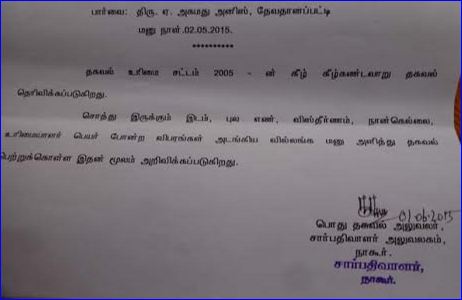 பார்வை: திரு. ஏ. அகமது அனிஸ், தேவதானப்பட்டி
மனு நாள்.02.05.2015.
**********
தகவல் உரிமை சட்டம் 2005 - ன் கீழ் கீழ்கண்டவாறு தகவல்
தெரிவிக்கப்படுகிறது.
சொத்து இருக்கும் இடம், புல எண், விஸ்தீர்ணம், நான்கெல்லை,
உரிமையாளர் பெயர் போன்ற விபரங்கள் அடங்கிய வில்லங்க மனு அளித்து தகவல்
பெற்றுக்கொள்ள இதன் மூலம் அறிவிக்கப்படுகிறது.
01/06/2015
பொது தகவல் அலுவலர்,
சார்பதிவாளர் அலுவலகம்,
நாகூர்.
சார்பதிவாளர்,
நாகூர்.